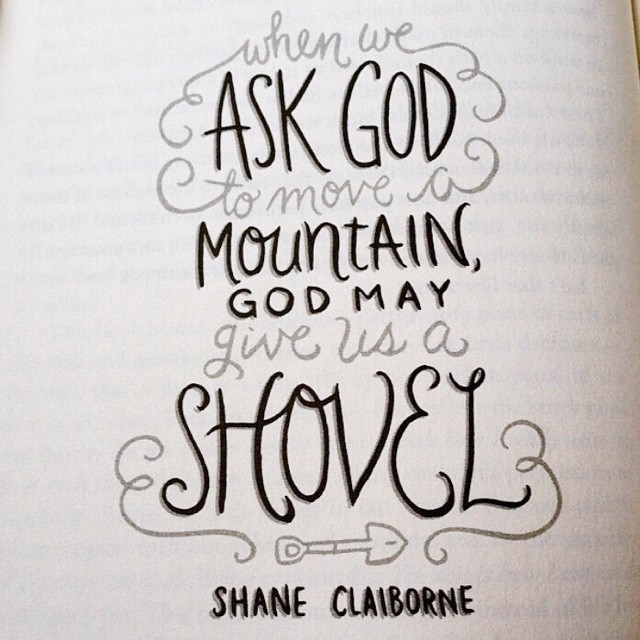 when we
ASK GOD
to move a
MOUNTAIN,
GOD MAY
give us a
SHOVEL
SHANE CLAIBORNE